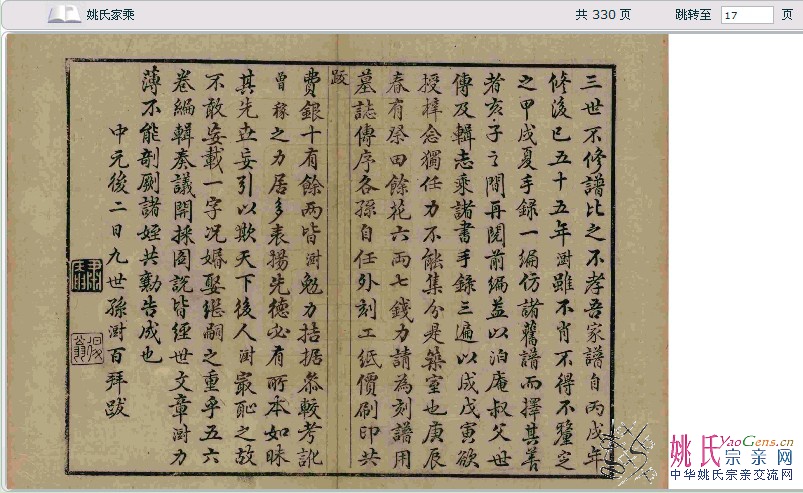 姚氏家乘
共 330 页
跳转至 17 页
三世不修譜比之不孝吾家譜自丙戌年
修後已五十五年澍雖不肖不得不釐定
之甲戌夏手録一編仿諸舊譜而擇其善
者亥子之間再閱前編益以泊庵叔父世
傳及輯志乘諸書手録三遍以成戊寅欲
授梓念獨任力不能集分是築室也庚辰
春有祭田餘花六两七錢力請為刻譜用
墓誌傳序各孫自任外刻工紙價刷印共
跋
費銀十有餘两皆澍勉力拮据叅較考訛
曾稼之力居多表揚先德必有所本如昧
其先世妄引以欺天下後人澍最恥之故
不敢妄載一字况婚娶継嗣之重乎五六
卷編輯奏議開採圖說皆經世文章澍力
薄不能剖劂諸姪共勷告成也
中元後二日九世孫澍百拜跋
姚氏宗亲网
YaoGens.cn
中华姚氏宗亲交流网